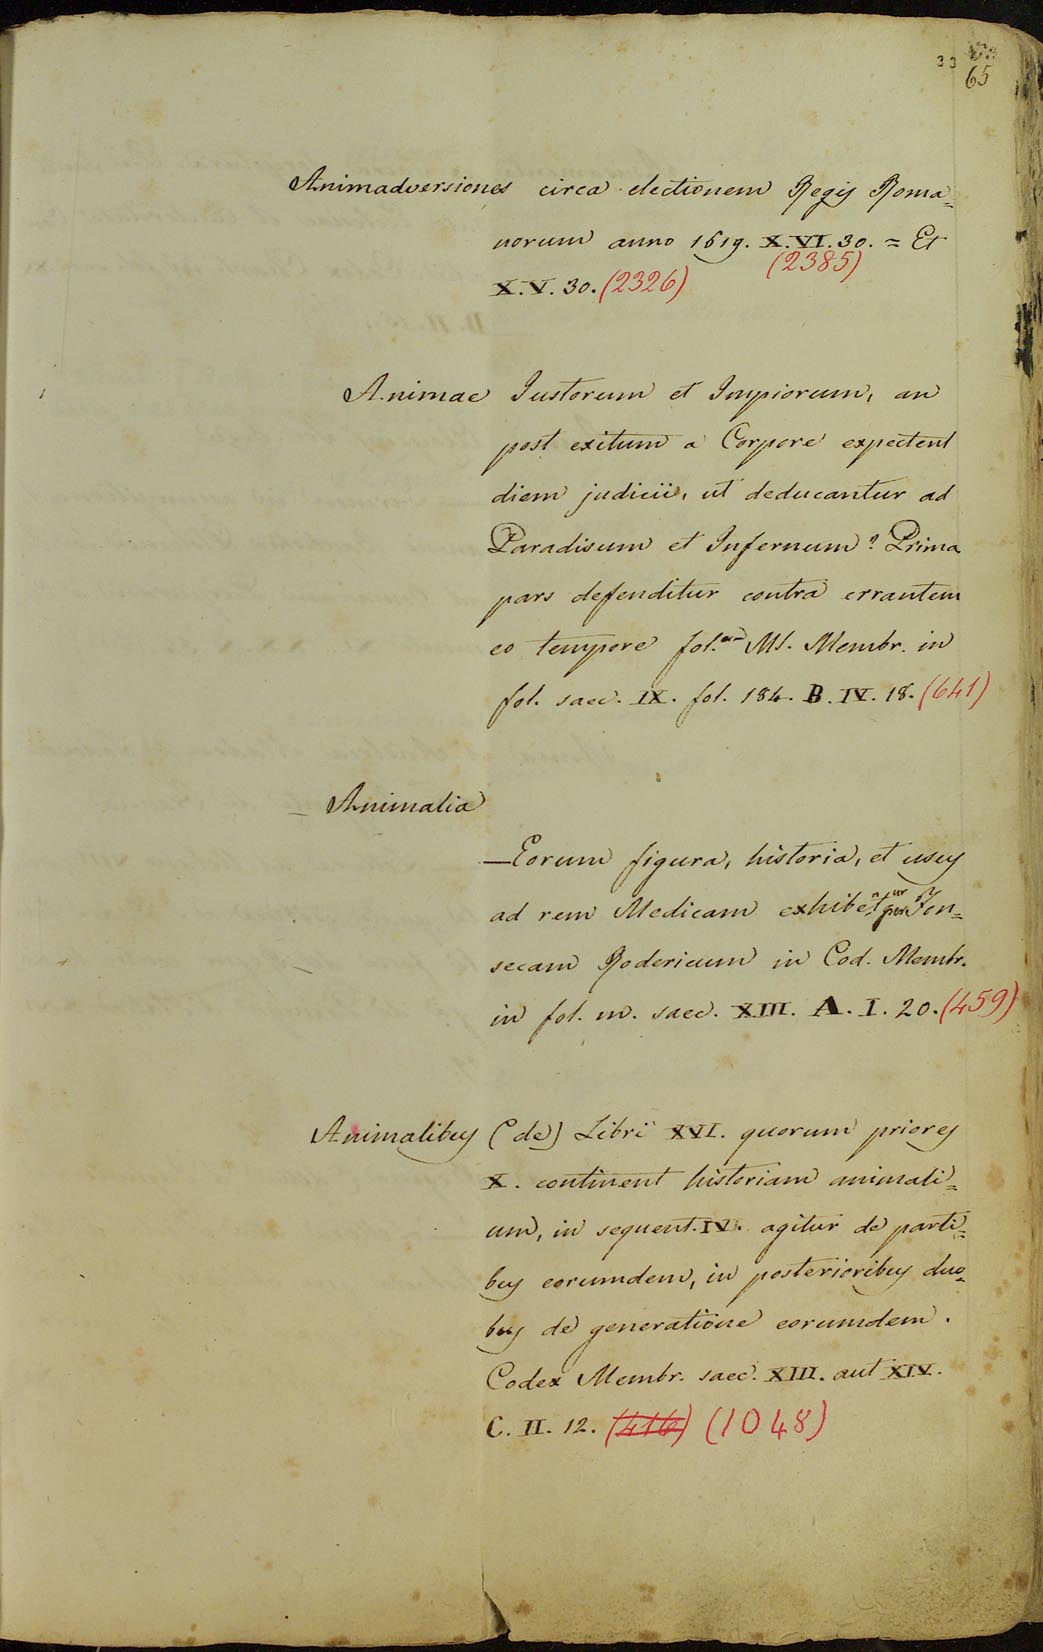 33
65
Animadversiones circa electionem Regis Roma=
norum anno 1619. X.VI.30. = Et
(2385)
X.V.30. (2326)
Animae Justorum et Impiorum, an
post exitum a Corpore expectent
diem judicii, ut deducantur ad
Paradisum et Infernum? Prima
pars defenditur contra errantem
eo tempore Ms. Membr. in
fol. saec. IX. fol. 184. B.IV.18. (641)
Animalia
—Eorum figura, historia, et usus
ad rem Medicam exhibentur per Fon=
secam Rodericum in Cod. Membr.
in fol. m. saec. XIII. A.I.20. (459)
Animalibus (de) Libri XVI. quorum priores
X. continent historiam animali=
um, in sequent. IV. agitur de parti=
bus eorumdem, in posterioribus duo=
bus de generatione eorumdem.
Codex Membr. saec. XIII. aut XIV.
C.II.12. (416) (1048)